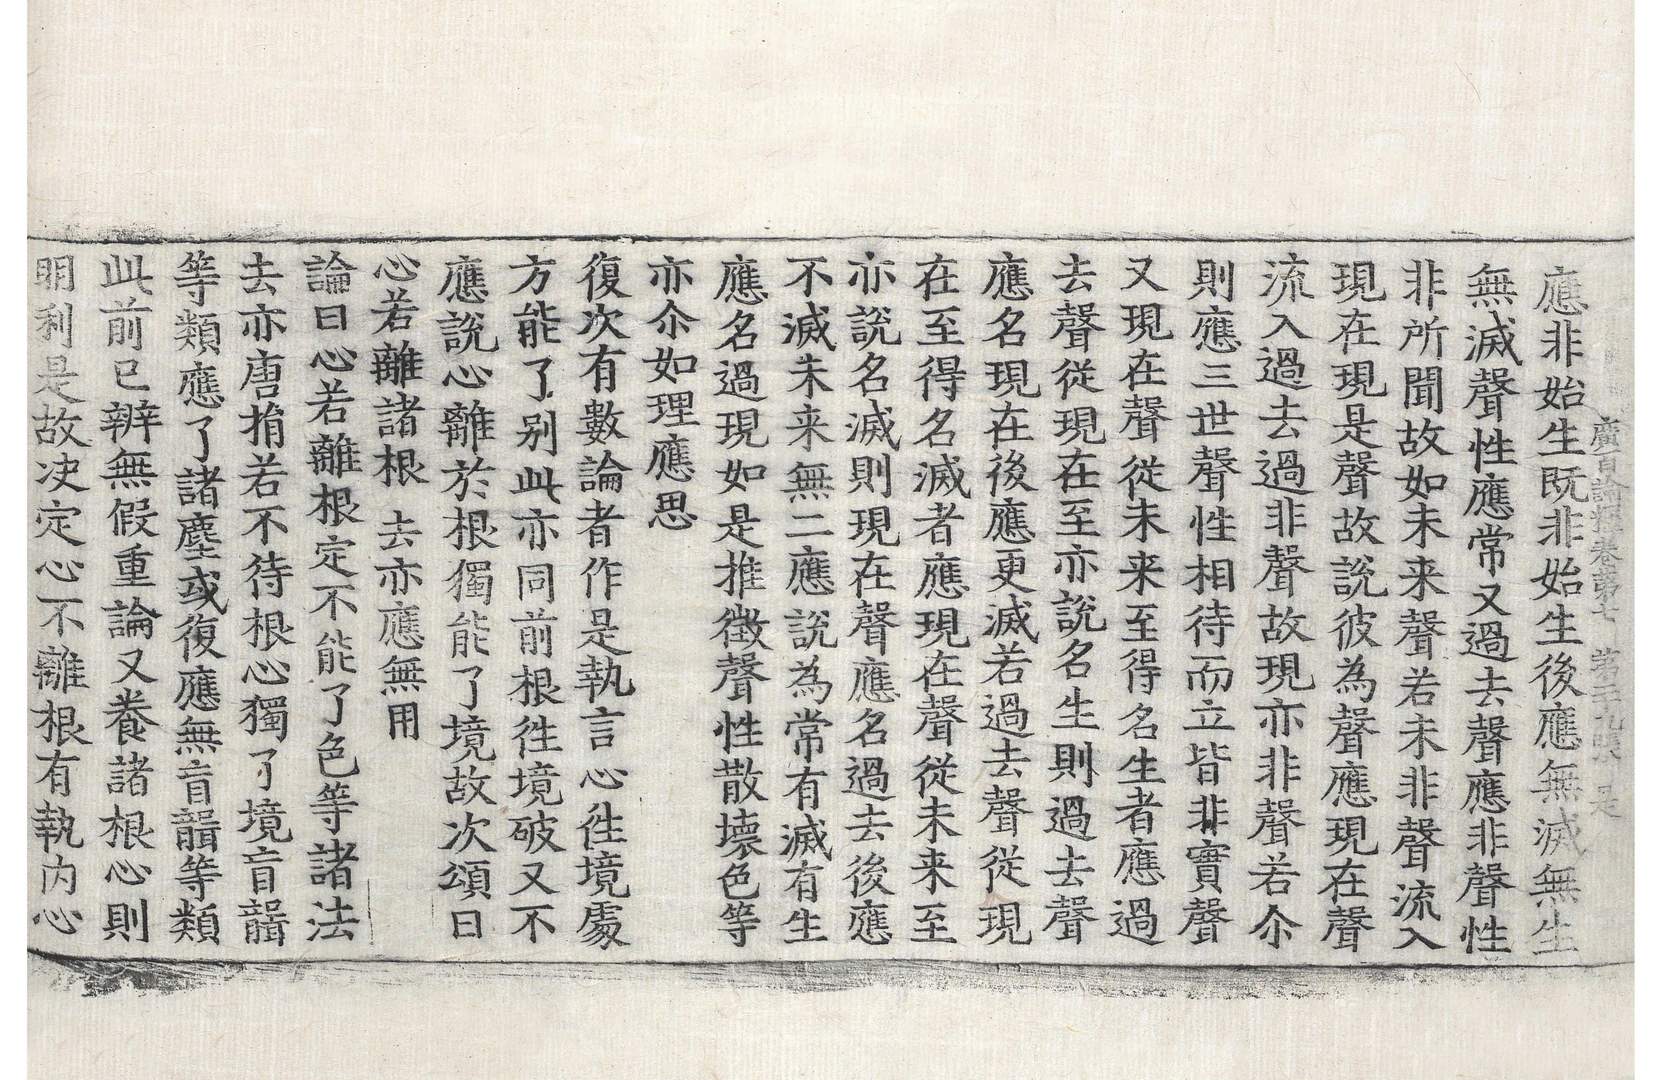 廣百論釋卷第七 第二十九張 是
應非始生既非始生後應無滅無生
無滅聲性應常又過去聲應非聲性
非所聞故如未来聲若未非聲流入
現在現是聲故說彼為聲應現在聲
流入過去過非聲故現亦非聲若尒
則應三世聲性相待而立皆非實聲
又現在聲從未来至得名生者應過
去聲從現在至亦說名生則過去聲
應名現在後應更滅若過去聲從現
在至得名滅者應現在聲從未来至
亦說名滅則現在聲應名過去後應
不滅未来無二應說為常有滅有生
應名過現如是推徵聲性散壊色等
亦尒如理應思
復次有數論者作是執言心徃境處
方能了别此亦同前根徃境破又不
應說心離於根獨能了境故次頌曰
心若離諸根 去亦應無用
論曰心若離根定不能了色等諸法
去亦唐捐若不待根心獨了境盲聾
等類應了諸塵或復應無盲聾等類
此前已辨無假重論又養諸根心則
明利是故决定心不離根有執内心